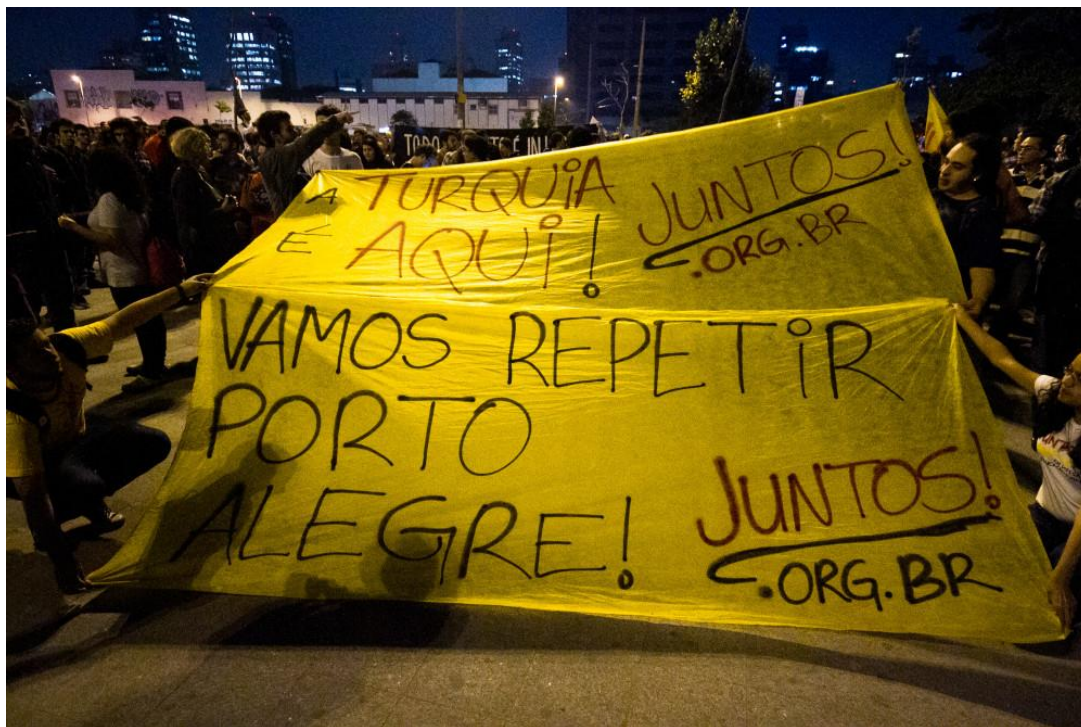 A TURQUIA
É AQUI!
JUNTOS!
.ORG.BR
VAMOS REPETIR
PORTO
ALEGRE!
JUNTOS!
.ORG.BR